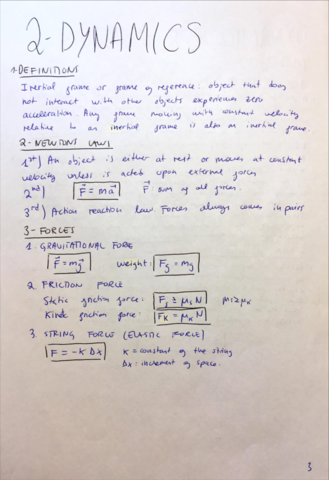 2-DYNAMICS
1. DEFINITIONS
Inertial frame or frame of reference: object that does
not interact with other objects experiences zero
acceleration. Any frame moving with constant velocity
relative to an inertial frame is also an inertial frame.
2- NEWTONS LAWS
1st) An object is either at rest or moves at constant
velocity unless is acted upon external forces
2nd) F⃗ = ma⃗ F⃗: sum of all forces.
3rd) Action reaction law. Forces always comes in pairs
3- FORCES
1. GRAVITATIONAL FORCE
F⃗ = mg⃗ weight: Fg = mg
2. FRICTION FORCE
Static friction force: Fs ≤ μs N μs ≥ μk
Kinetic friction force: Fk = μk N
3. STRING FORCE (ELASTIC FORCE)
F = -K Δx K = constant of the string
Δx: increment of space.
3